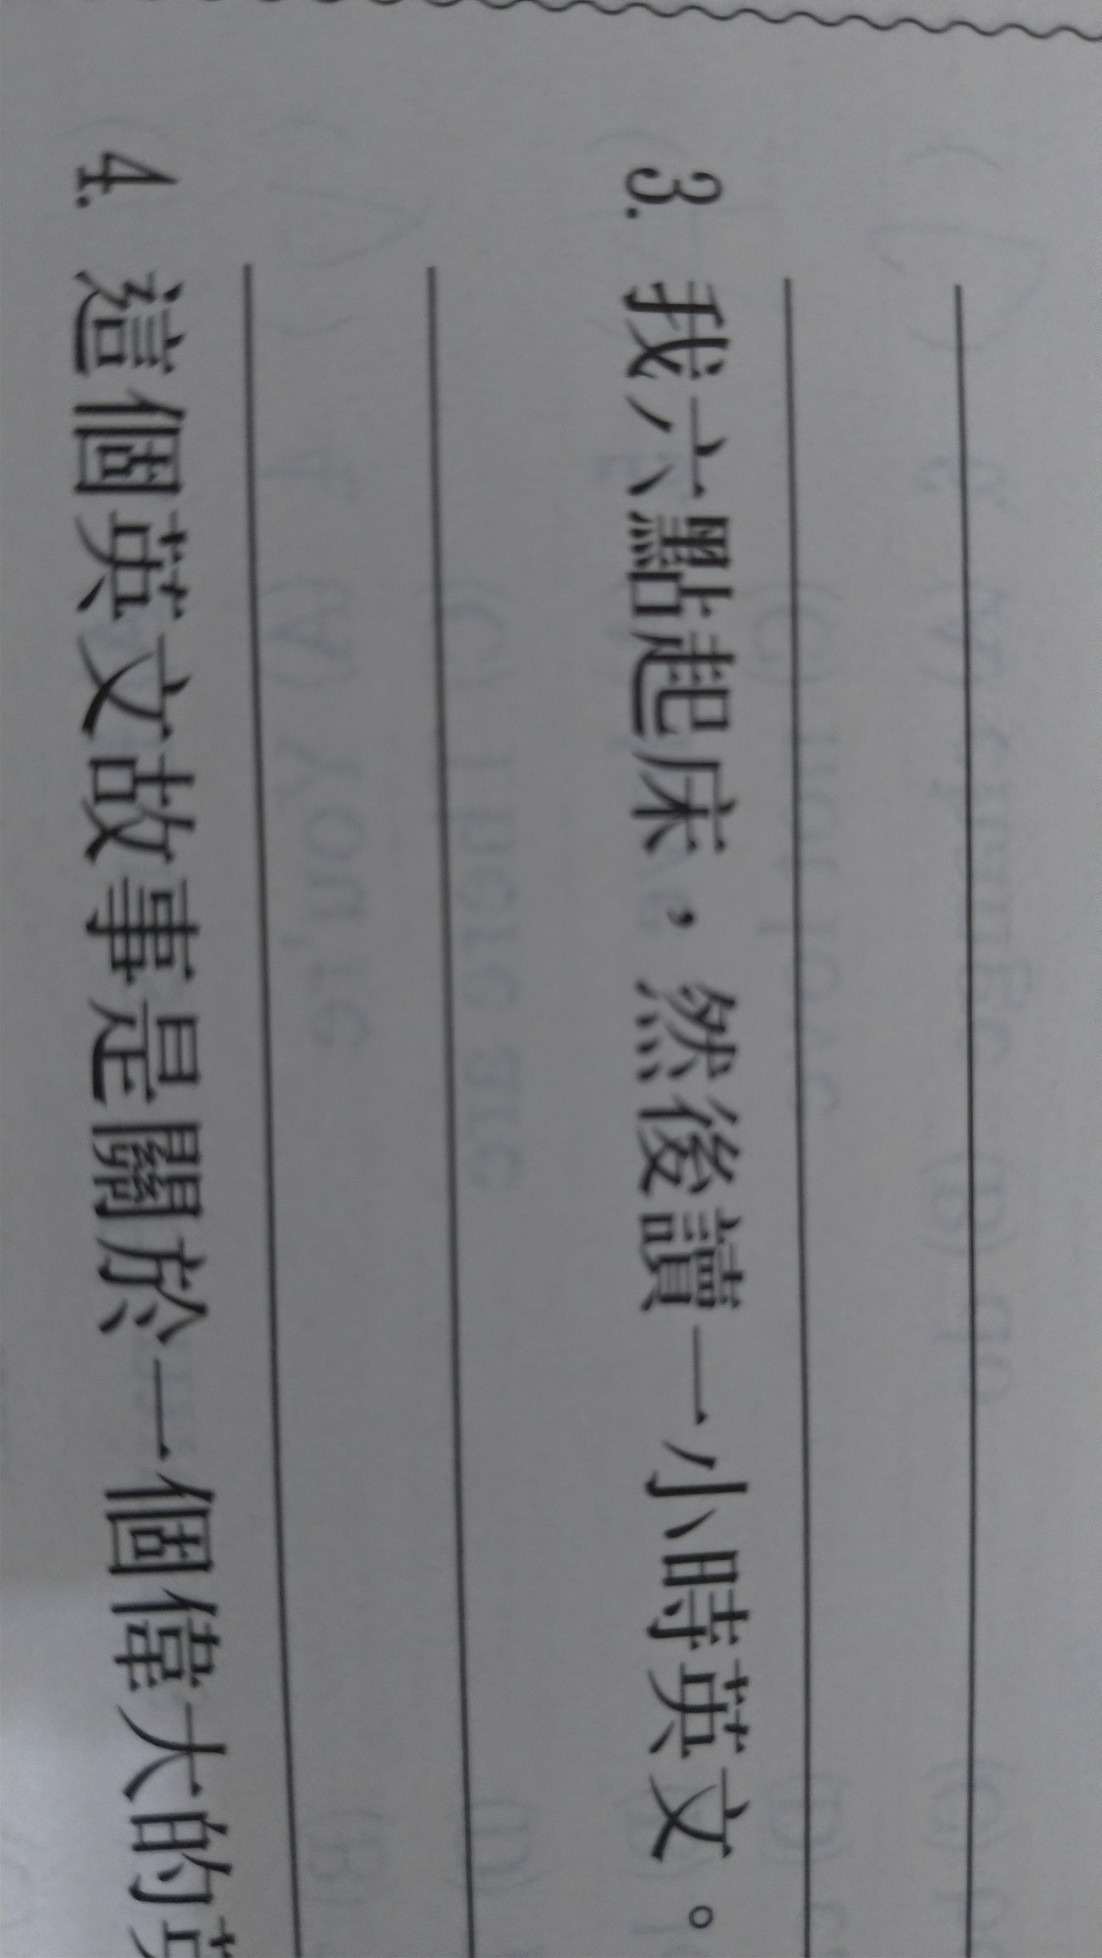 3. 我六點起床，然後讀一小時英文。
4. 這個英文故事是關於一個偉大的英